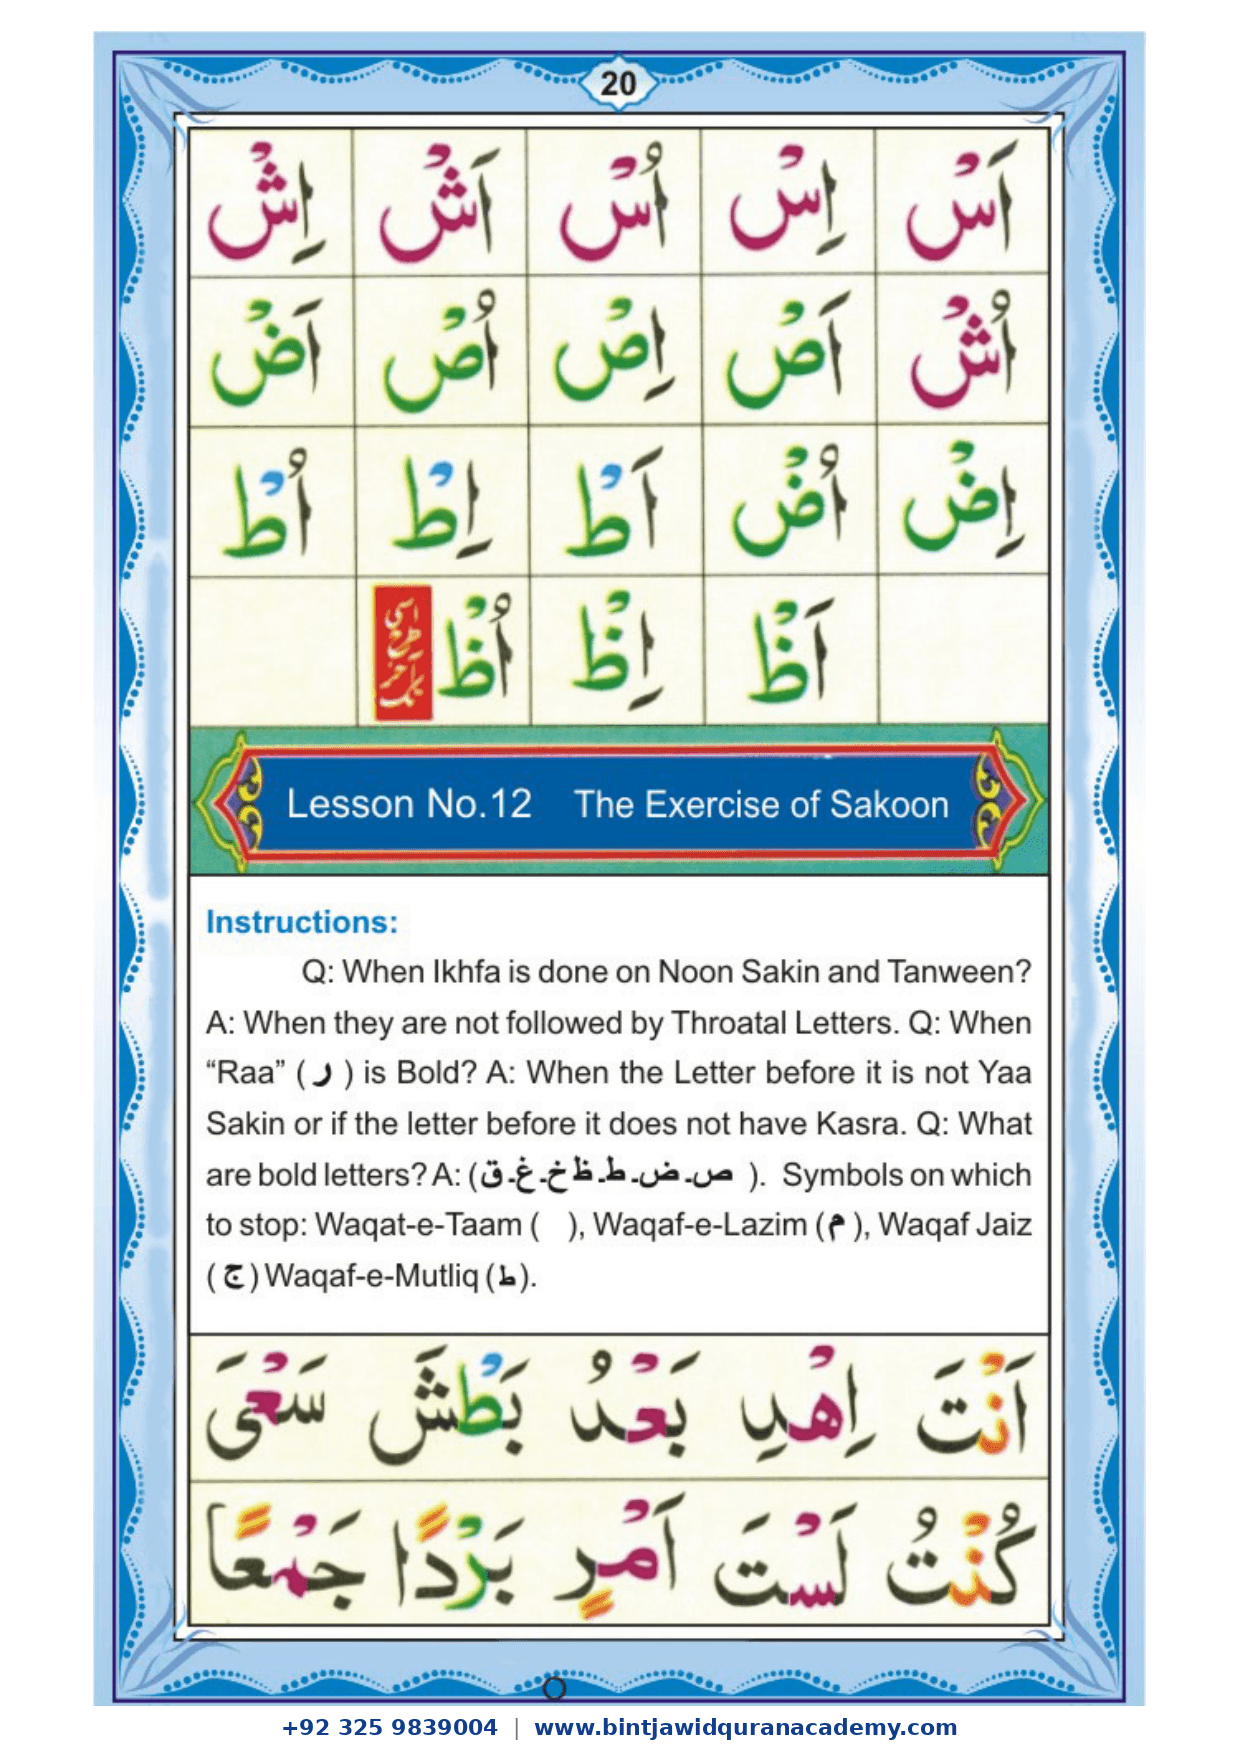 20
اَسْ اِسْ اُسْ اَشْ اِشْ
اُشْ اَصْ اِصْ اُصْ اَضْ
اِضْ اُضْ اَطْ اِطْ اُطْ
اَظْ اِظْ اُظْ اسی طرح آخر تک
Lesson No.12 The Exercise of Sakoon
Instructions:
Q: When Ikhfa is done on Noon Sakin and Tanween?
A: When they are not followed by Throatal Letters. Q: When
“Raa” ( ر ) is Bold? A: When the Letter before it is not Yaa
Sakin or if the letter before it does not have Kasra. Q: What
are bold letters? A: ( ص ـ ض ـ ط ـ ظ خ ـ غ ـ ق ). Symbols on which
to stop: Waqat-e-Taam ( ), Waqaf-e-Lazim ( م ), Waqaf Jaiz
( ج ) Waqaf-e-Mutliq ( ط ).
اَنْتَ اِهْدِ بَعْدُ بَطْشَ سَعْیَ
كُنْتُ لَسْتَ اَمْرٍ بَرْدًا جَمْعًا
+92 325 9839004 | www.bintjawidquranacademy.com